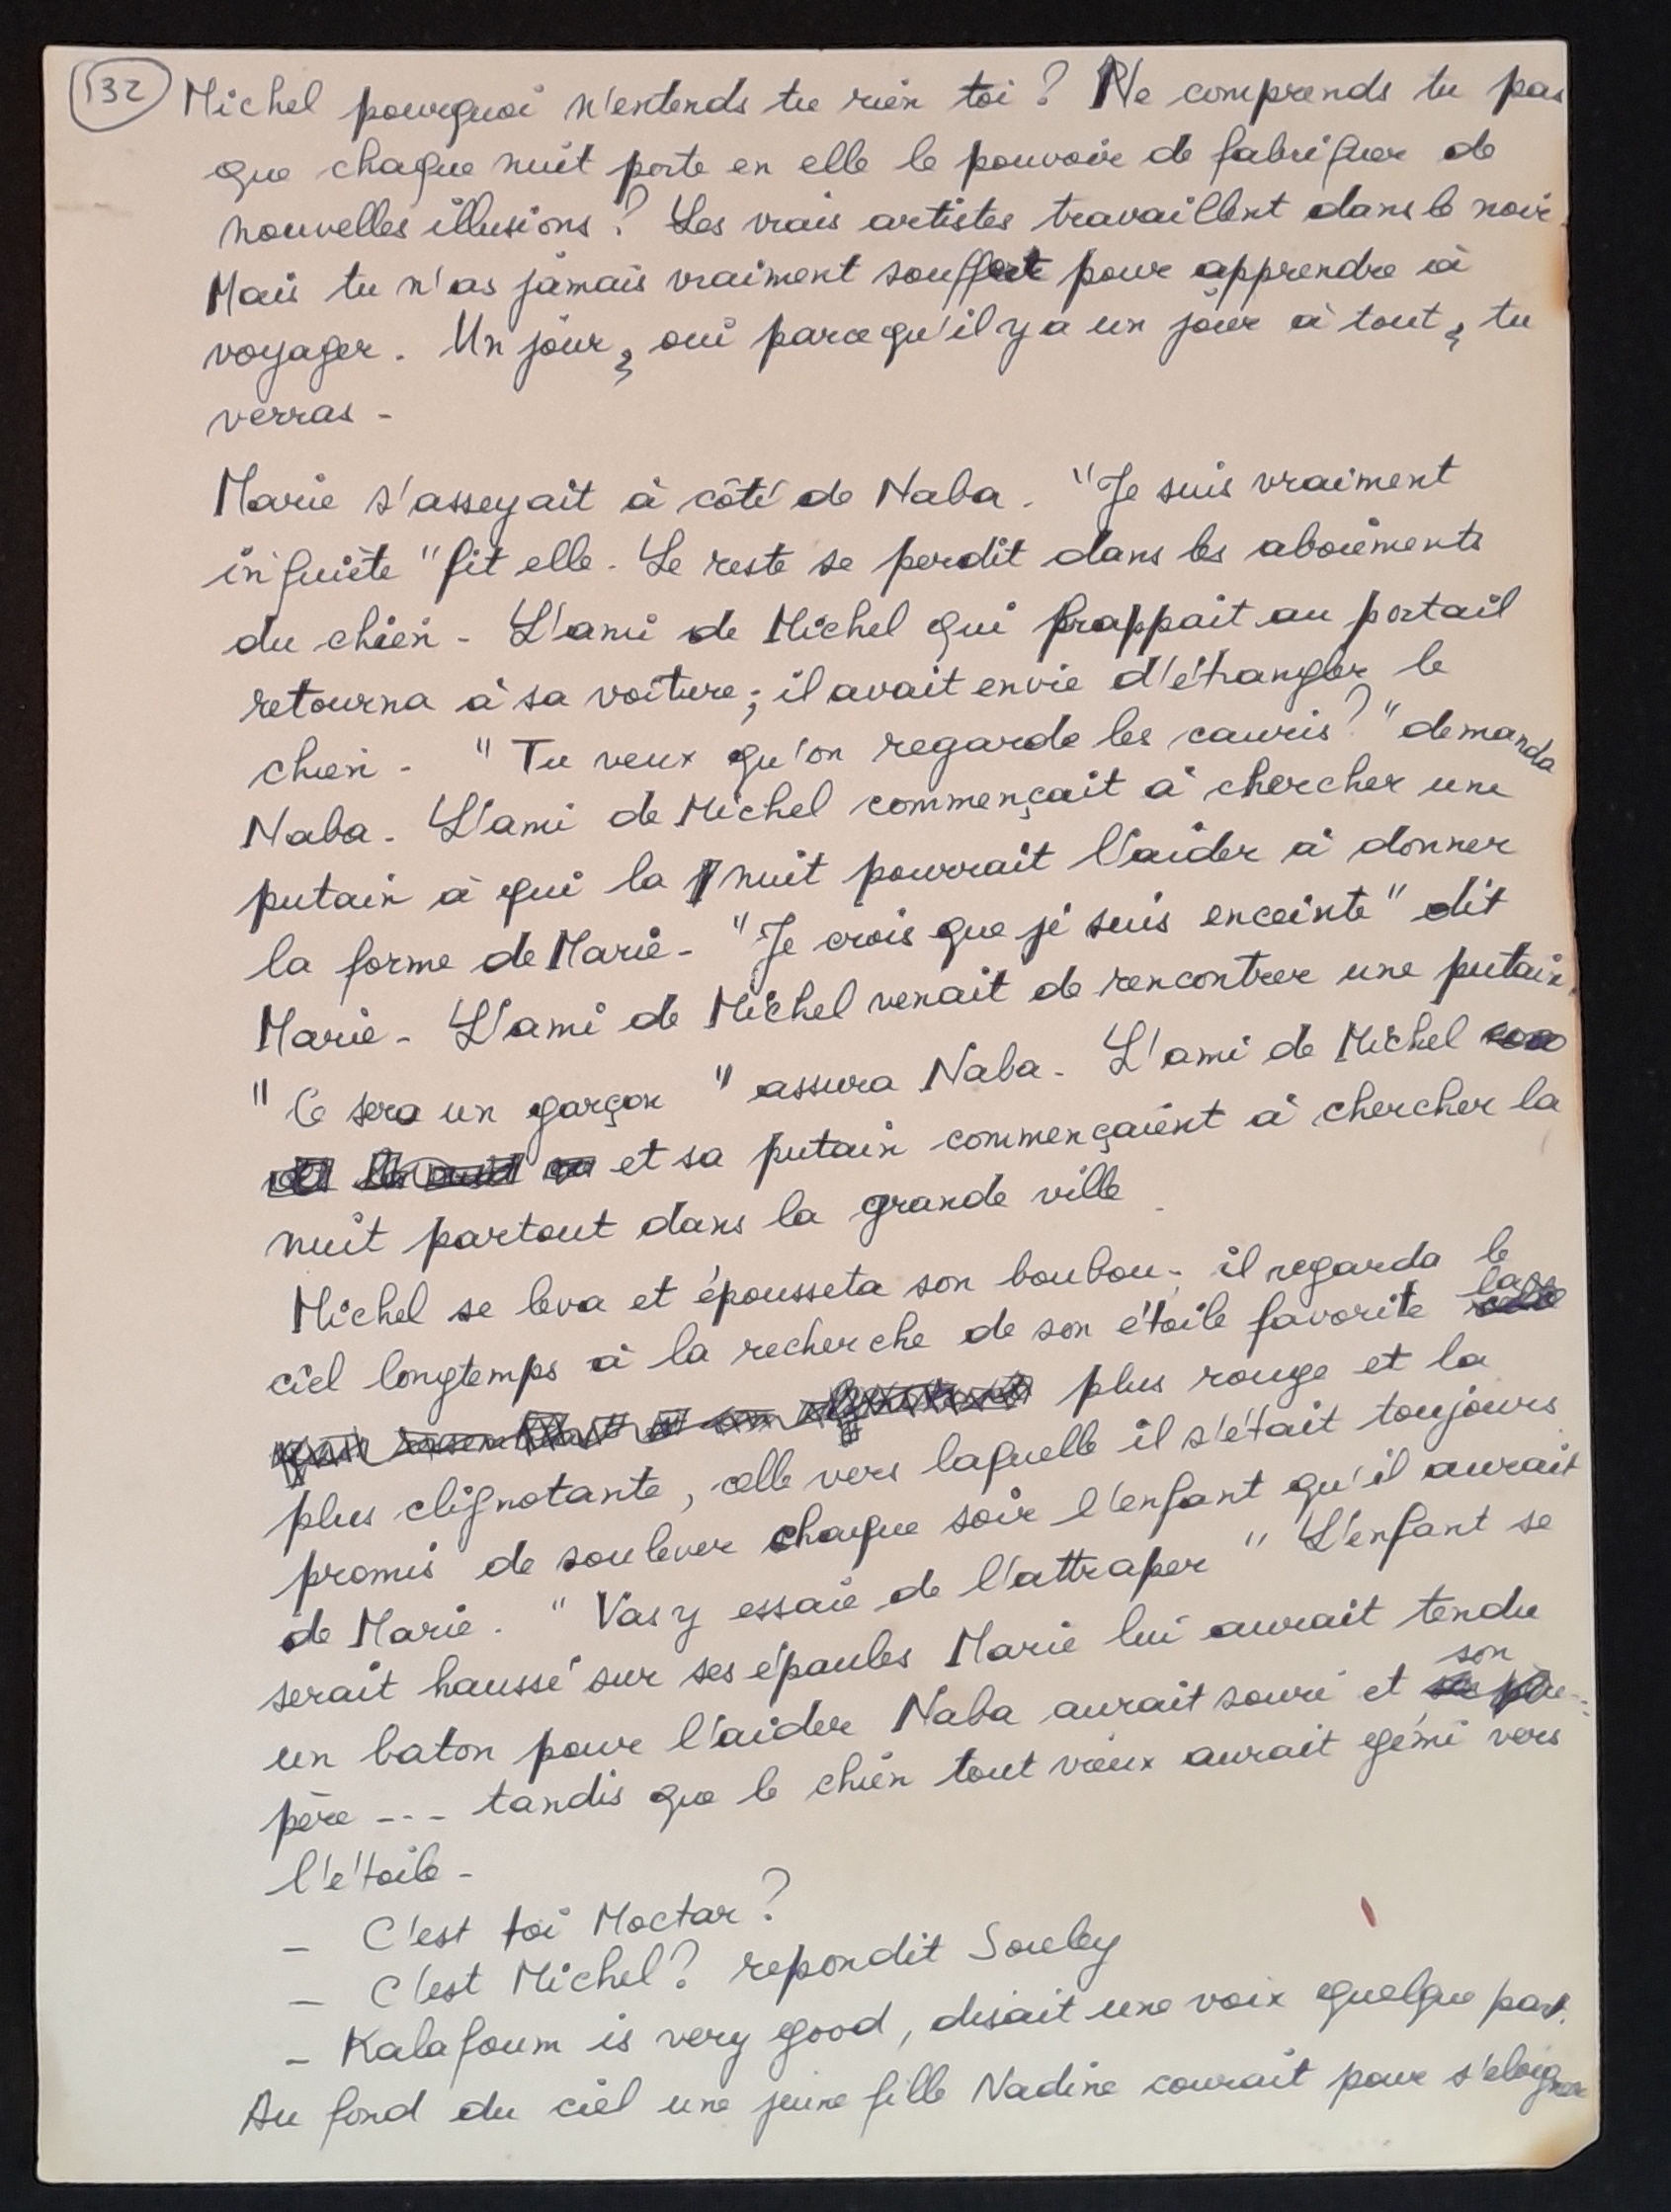 132 Michel pourquoi n'entends tu rien toi ? Ne comprends tu pas
que chaque nuit porte en elle le pouvoir de fabriquer de
nouvelles illusions ? Les vrais artistes travaillent dans le noir.
Mais tu n'as jamais vraiment souffert pour apprendre à
voyager. Un jour, oui parcequ'il y a un jour à tout, tu
verras -
Marie s'asseyait à côté de Naba. "Je suis vraiment
inquiète" fit elle. Le reste se perdit dans les aboiements
du chien - L'ami de Michel qui frappait au portail
retourna à sa voiture ; il avait envie d'étrangler le
chien - "Tu veux qu'on regarde les cauris ?" demanda
Naba - L'ami de Michel commençait à chercher une
putain à qui la nuit pourrait l'aider à donner
la forme de Marie - "Je crois que je suis enceinte" dit
Marie - L'ami de Michel venait de rencontrer une putain.
"Ce sera un garçon" assura Naba - L'ami de Michel
et sa putain commençaient à chercher la
nuit partout dans la grande ville
Michel se leva et épousseta son boubou ; il regarda le
ciel longtemps à la recherche de son étoile favorite la
plus rouge et la
plus clignotante, celle vers laquelle il s'était toujours
promis de soulever chaque soir l'enfant qu'il aurait
de Marie. "Vas y essaie de l'attraper" L'enfant se
serait haussé sur ses épaules Marie lui aurait tendu
un baton pour l'aider Naba aurait souri et son
père --- tandis que le chien tout vieux aurait gémi vers
l'étoile -
- C'est toi Moctar ?
- C'est Michel ? repondit Souley
- Kalafoum is very good, disait une voix quelque part.
Au fond du ciel une jeune fille Nadine courait pour s'eloigner